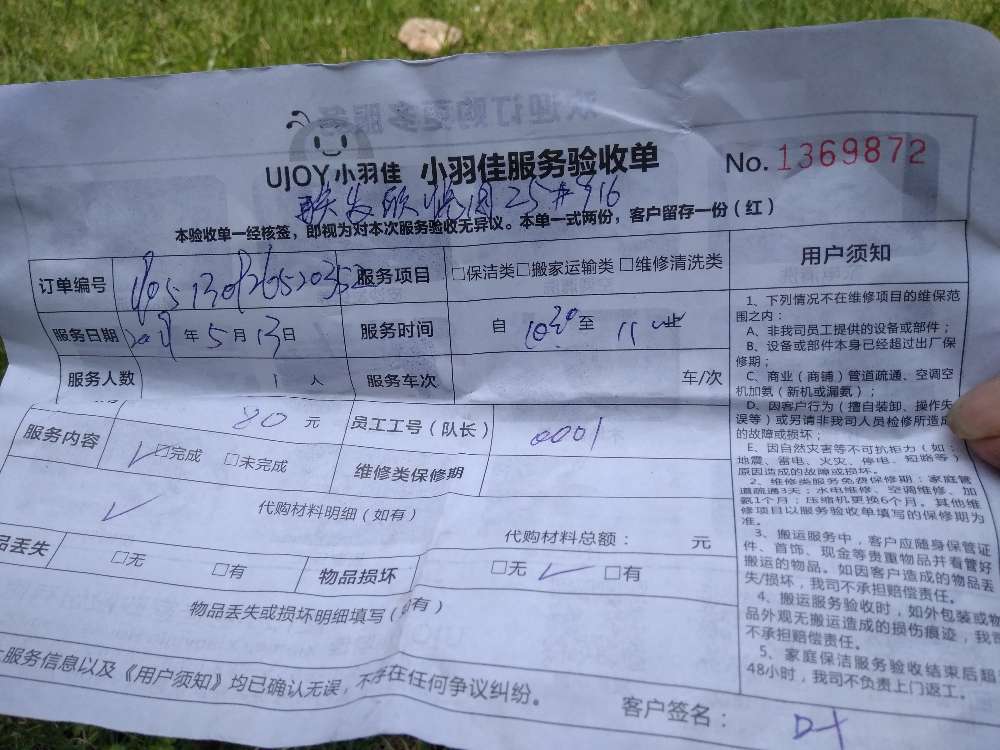 欢迎订购更多服务
UJOY小羽佳 小羽佳服务验收单 No.1369872
25#916
本验收单一经核签，即视为对本次服务验收无异议。本单一式两份，客户留存一份（红）
订单编号 服务项目 □保洁类□搬家运输类□维修清洗类
服务日期 年5月13日 服务时间 自 10:30 至 11 止
服务人数 1 人 服务车次 车/次
80 元 员工工号（队长） 0001
服务内容 ✓□完成 □未完成 维修类保修期
✓ 代购材料明细（如有） 代购材料总额： 元
品丢失 □无 □有 物品损坏 □无 ✓ □有
物品丢失或损坏明细填写（如有）
服务信息以及《用户须知》均已确认无误，不存在任何争议纠纷。
客户签名：
用户须知
1、下列情况不在维修项目的维保范
围之内：
A、非我司员工提供的设备或部件；
B、设备或部件本身已经超过出厂保
修期；
C、商业（商铺）管道疏通、空调空
机加氨（新机或漏氨）；
D、因客户行为（擅自装卸、操作失
误等）或另请非我司人员检修所造成
的故障或损坏；
E、因自然灾害等不可抗拒力（如：
地震、雷电、火灾、停电、短路等）
原因造成的故障或损坏。
2、维修类服务免费保修期：家庭管
道疏通3天；水电维修、空调维修、加
氨1个月；压缩机更换6个月。其他维
修项目以服务验收单填写的保修期为
准。
3、搬运服务中，客户应随身保管证
件、首饰、现金等贵重物品并看管好
搬运的物品。如因客户造成的物品丢
失/损坏，我司不承担赔偿责任。
4、搬运服务验收时，如外包装或物
品外观无搬运造成的损伤痕迹，我司
不承担赔偿责任。
5、家庭保洁服务验收结束后超
48小时，我司不负责上门返工。